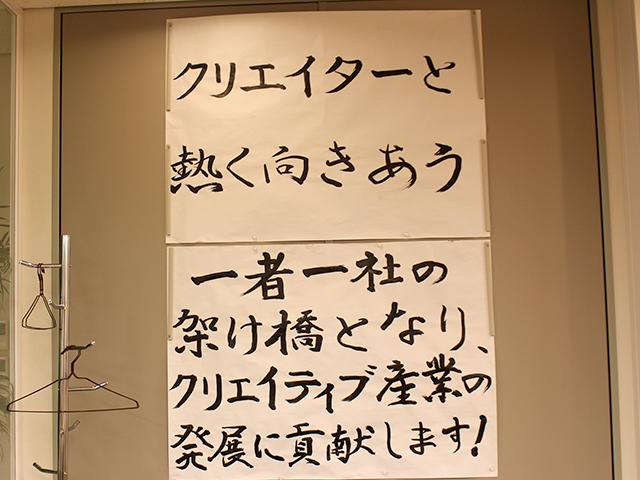 クリエイターと
熱く向きあう
一者一社の
架け橋となり、
クリエイティブ産業の
発展に貢献します!